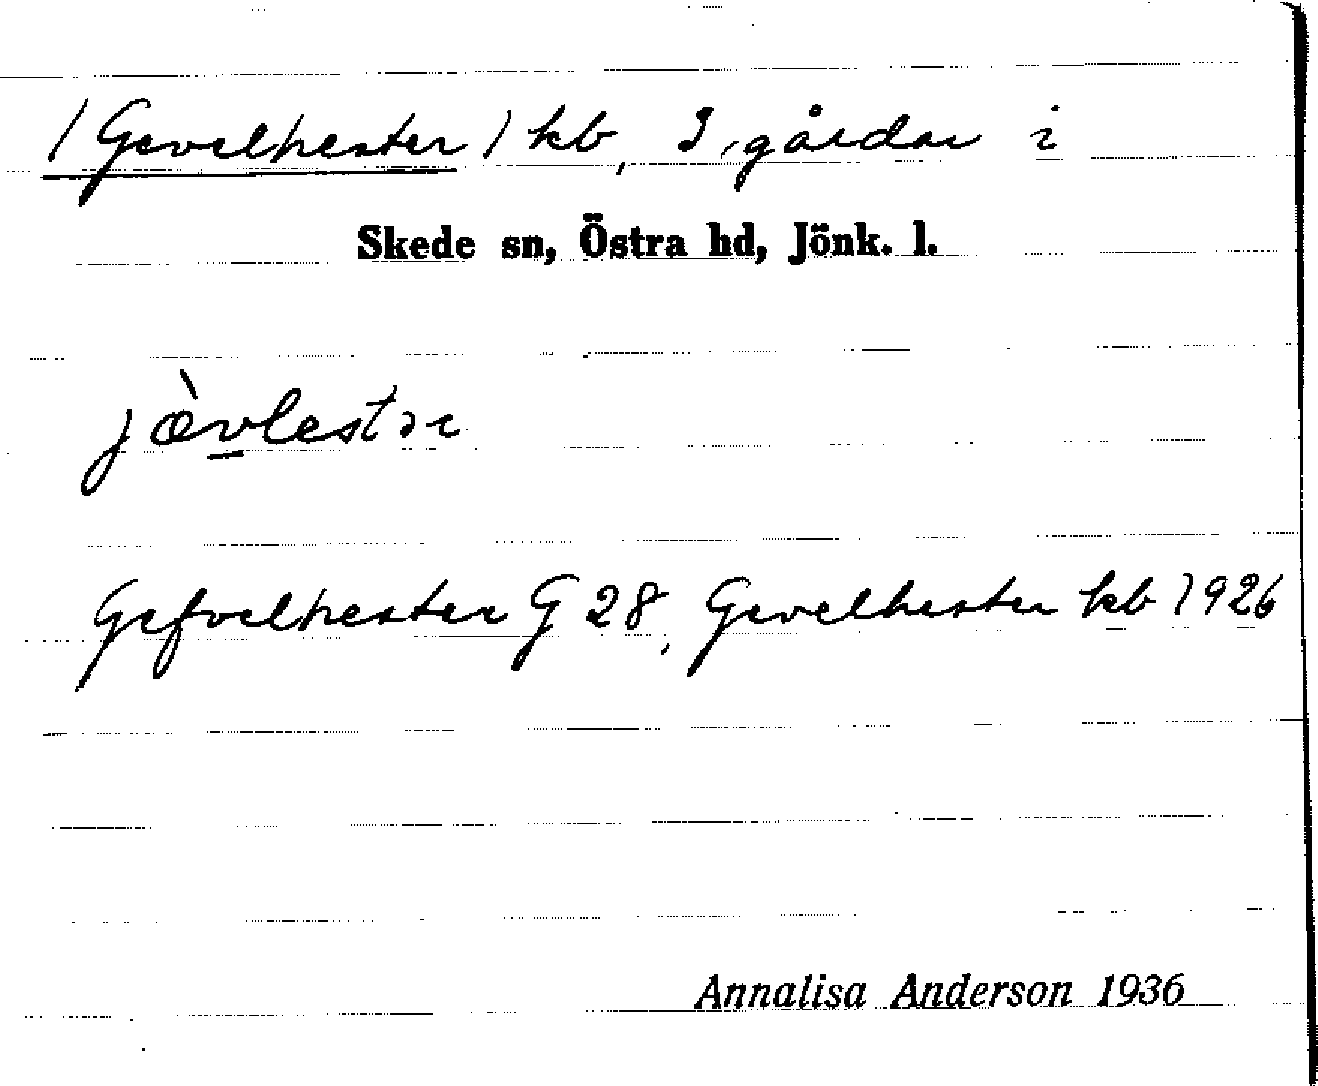 /Gevelhester/ kb, 3, gårdar i
Skede sn, Östra hd, Jönk. l.
jæ̀vlestər
Gefvelhester G 28, Gevelhester kb 1926
Annalisa Anderson 1936